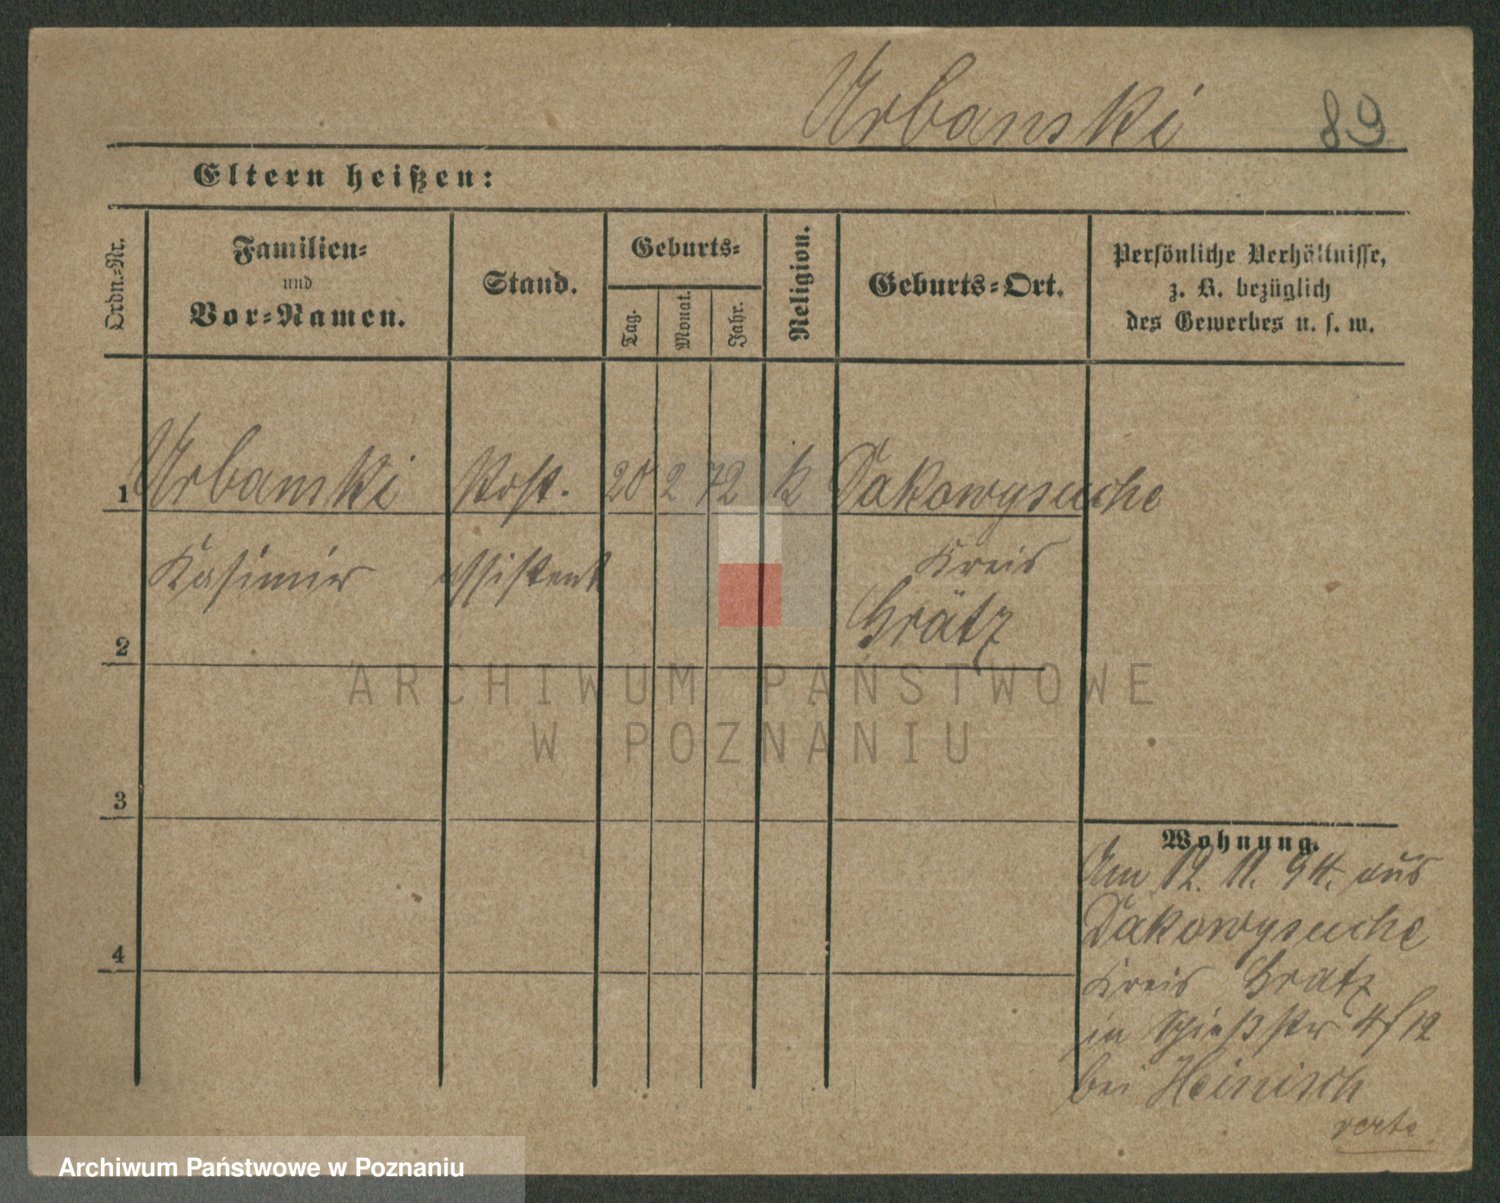 Urbanski 89
Eltern heißen:
Ordn.-Nr.
Familien-
und
Vor-Namen.
Stand.
Geburts-
Tag.
Monat.
Jahr.
Religion.
Geburts-Ort.
Persönliche Verhältnisse,
z. B. bezüglich
des Gewerbes u. s. w.
1 Urbanski Post. 20 2 72 k Dakowysuche
Kasimir assistent Kreis
2 Grätz
ARCHIWUM PAŃSTWOWE
W POZNANIU
3
4
Wohnung.
Am 12. 11. 94. aus
Dakowysuche
Kreis Gratz
in Schießstr 4/12
bei Heinisch
verte
Archiwum Państwowe w Poznaniu